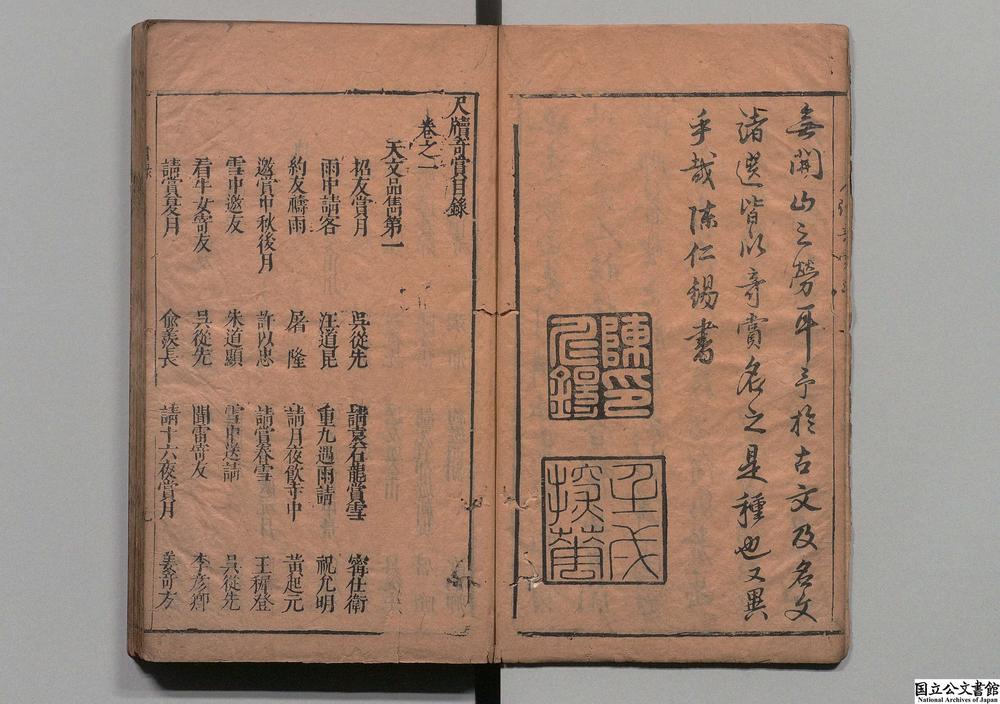 無開山之勞耳予於古文及名文
諸選皆以奇賞名之是種也又異
乎哉 陳仁錫書
陳印
仁錫
壬戌
探花
尺牘奇賞目錄
卷之一
天文品雋第一
招友賞月 吳從先 請袁石龍賞雪 甯仕衛
雨中請客 汪道昆 重九遇雨請 祝允明
約友禱雨 屠隆 請月夜飲寺中 黃起元
邀賞中秋後月 許以忠 請賞春雪 王穉登
雪中邀友 朱道顯 雪中送請 吳從先
看牛女寄友 吳從先 聞雷寄友 李彥卿
請賞夏月 俞羨長 請十六夜賞月 姜奇方
国立公文書館
National Archives of Japan